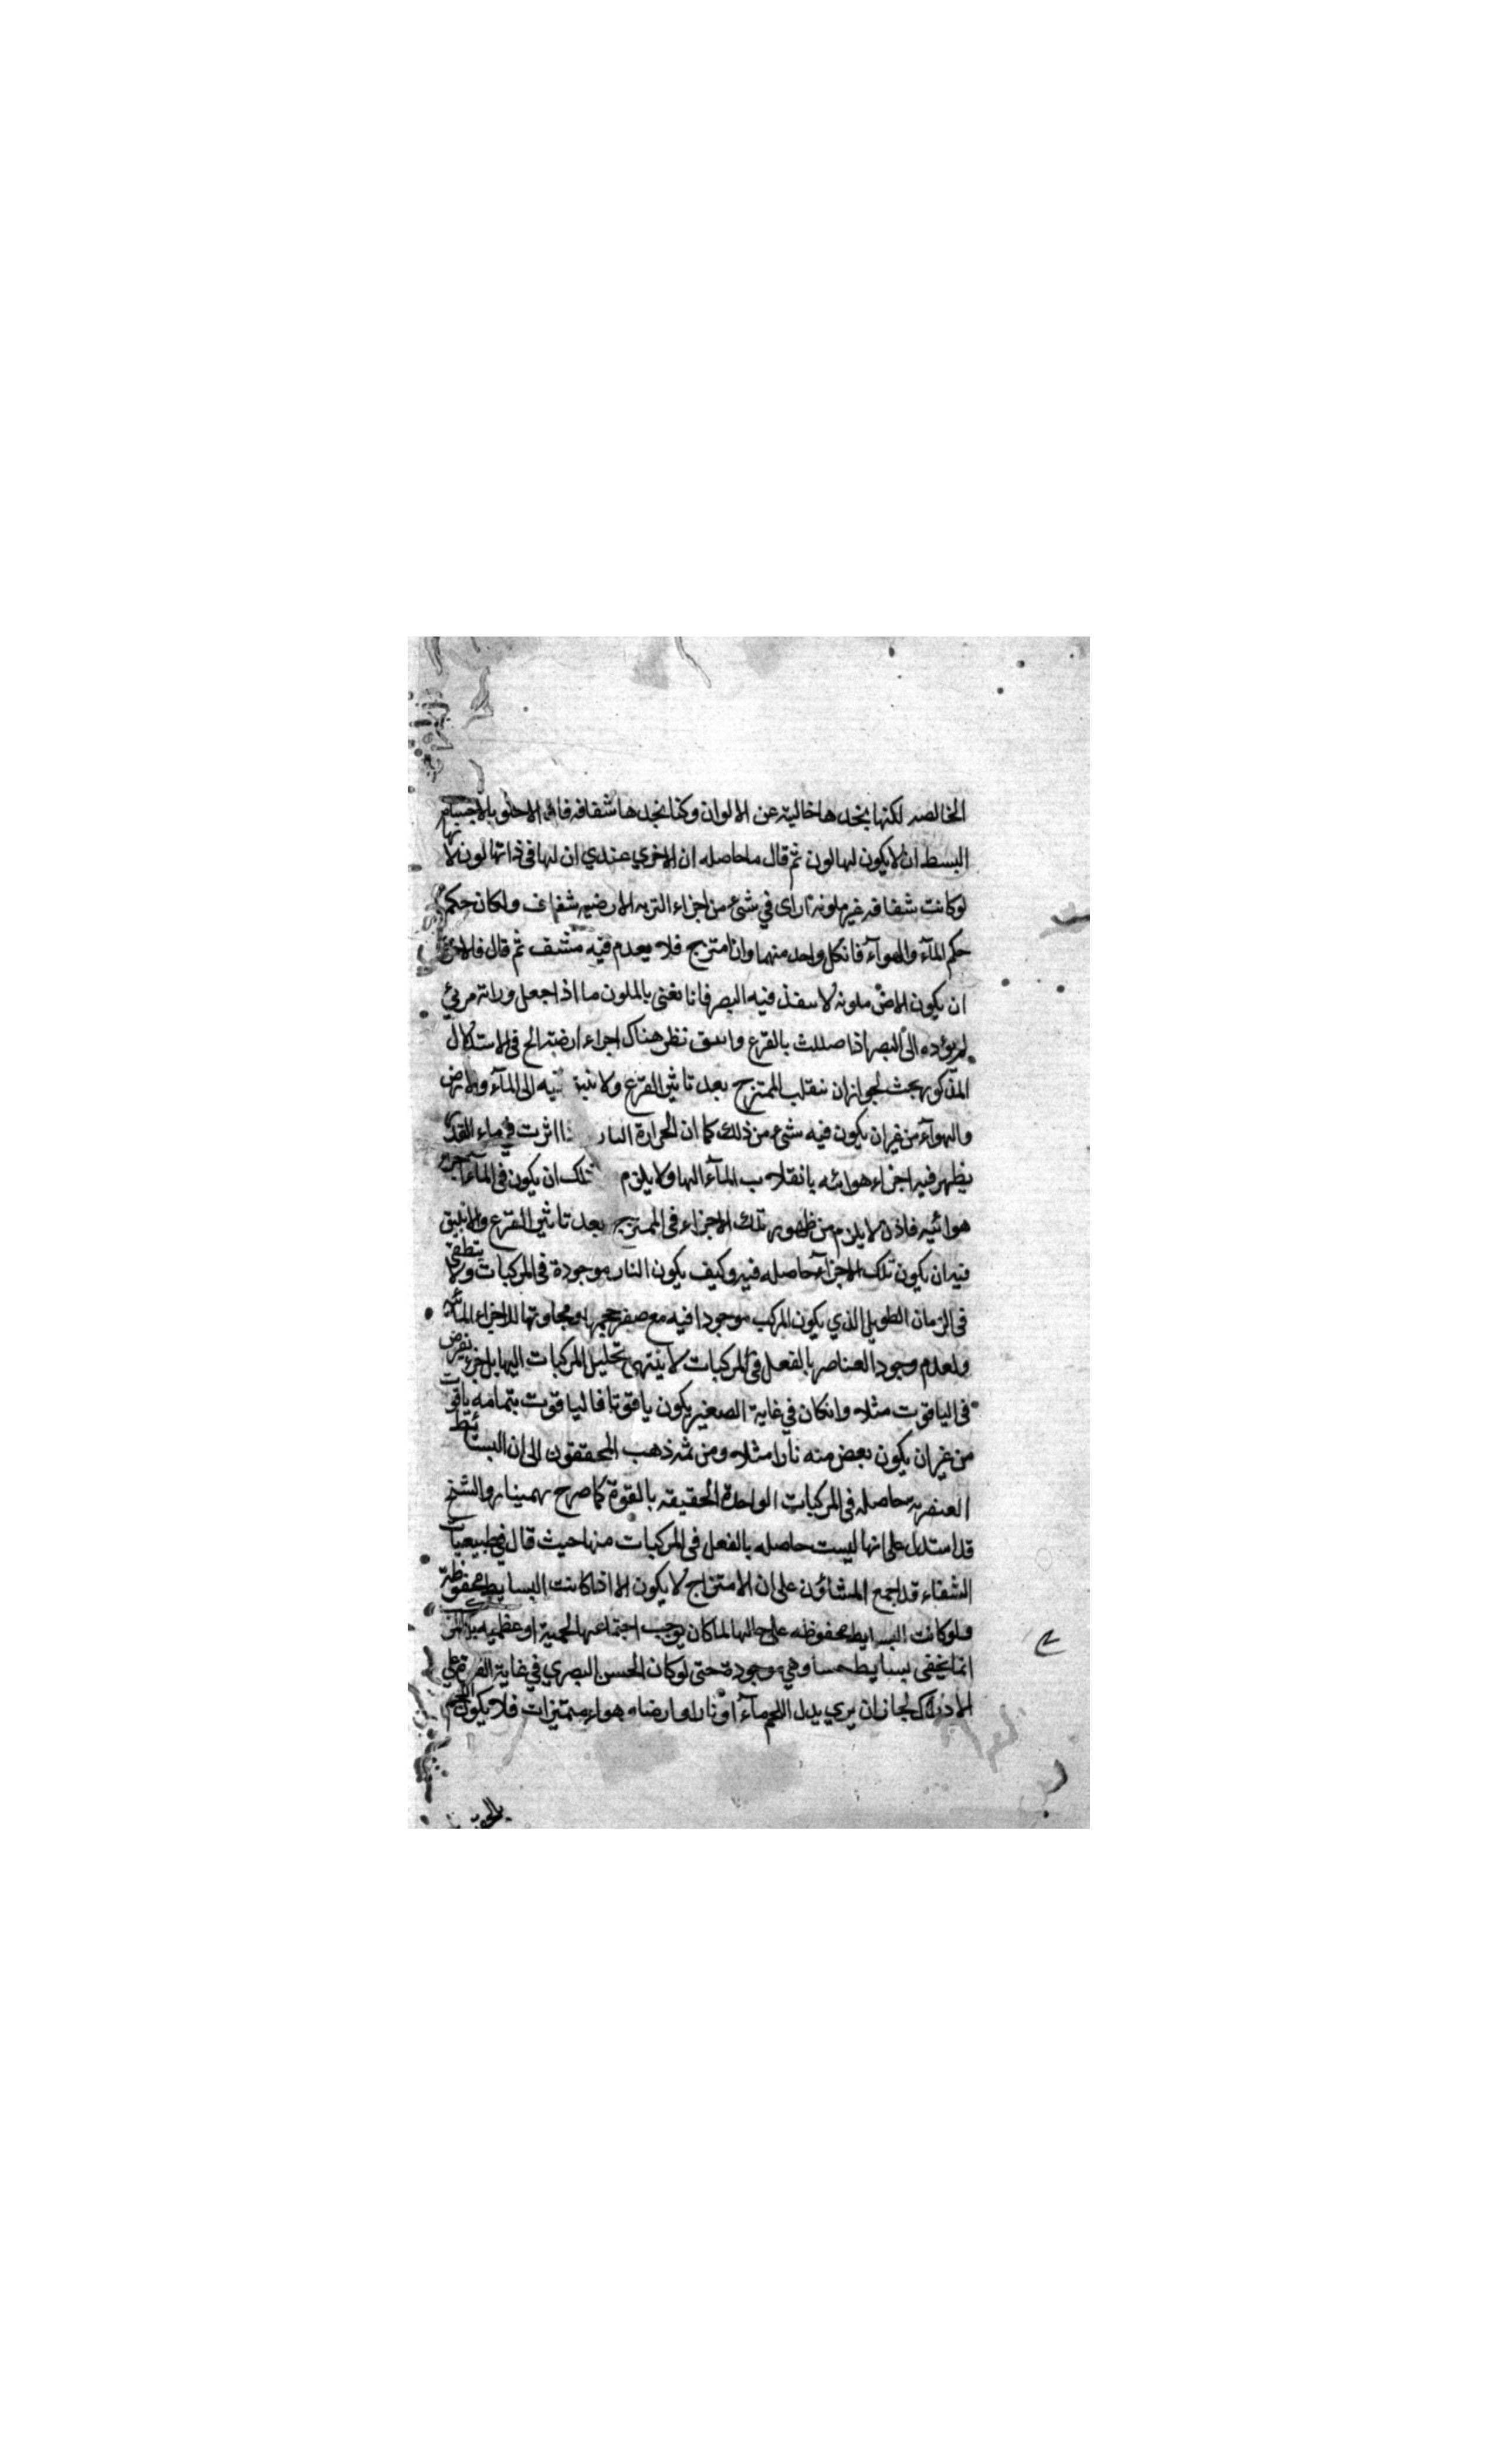 الخالصه لكنها نجدها خالية عن الالوان وكنا نجدها شفافه فاذن الاخلق بالاجسام
البسط ان لا يكون لها لون ثم قال ما حاصله ان الاخرى عندي ان لها في ذاتها لون لانها
لو كانت شفافه غير ملونه لراى في شئ من اجزاء التربه الارضيه شفاف ولكان حكمها
حكم المآء والهوآء فان كل واحد منهما وان امتزج فلا يعدم فيه مشف ثم قال فالاخرى
ان يكون الارض ملونه لا ينفذ فيه البصر فانا نعنى بالملون ما اذا جعل ورائه مرئي
لم يؤده الى البصر اذا حللت بالقرع والانبيق نظر هناك اجزاء ارضية الخ في الاستدلال
المذكور بحث لجواز ان ينقلب الممتزج بعد تاثير القرع والانبيق فيه الى المآء والارض
والهوآء من غير ان يكون فيه شئ من ذلك كما ان الحرارة النار اذا اثرت في ماء القدر
يظهر فيه اجزاء هوائيه بانقلاب المآء اليها ولا يلزم ذلك ان يكون في المآء اجزاء
هوائيه فاذن لا يلزم من ظهور تلك الاجزاء في الممتزج بعد تاثير القرع والانبيق
فيه ان يكون تلك الاجزآء حاصله فيه وكيف يكون النار موجودة في المركبات ولا ينطفى
في الزمان الطويل الذي يكون المركب موجودا فيه مع صغر حجمها ومجاورتها للاجزاء المائيه
ولعدم وجود العناصر بالفعل في المركبات لا ينتهى تحليل المركبات اليها بل جزء يفرض
في الياقوت مثلا وان كان في غاية الصغير يكون ياقوتا فالياقوت بتمامه ياقوت
من غير ان يكون بعض منه نارا مثلا ومن ثمه ذهب المحققون الى ان البسائط
العنصريه حاصله في المركبات الواحدة الحقيقه بالقوة كما صرح بهمنيار والشيخ
قد استدل على انها ليست حاصله بالفعل في المركبات منها حيث قال في طبيعيات
الشفاء قد اجمع المشاؤن على ان الامتزاج لا يكون الا اذا كانت البسايط محفوظة
ولو كانت البسايط محفوظه على حالها لما كان يوجب اجتماعها لحمية او عظميه بل
انما يخفى بسايط حسا وهي موجودة حتى لو كان الحسن البصري في غاية القوة على
الادراك لجاز ان يرى بدل اللحم مآء او نارا وارضا وهواء متميزات فلا يكون اللحم